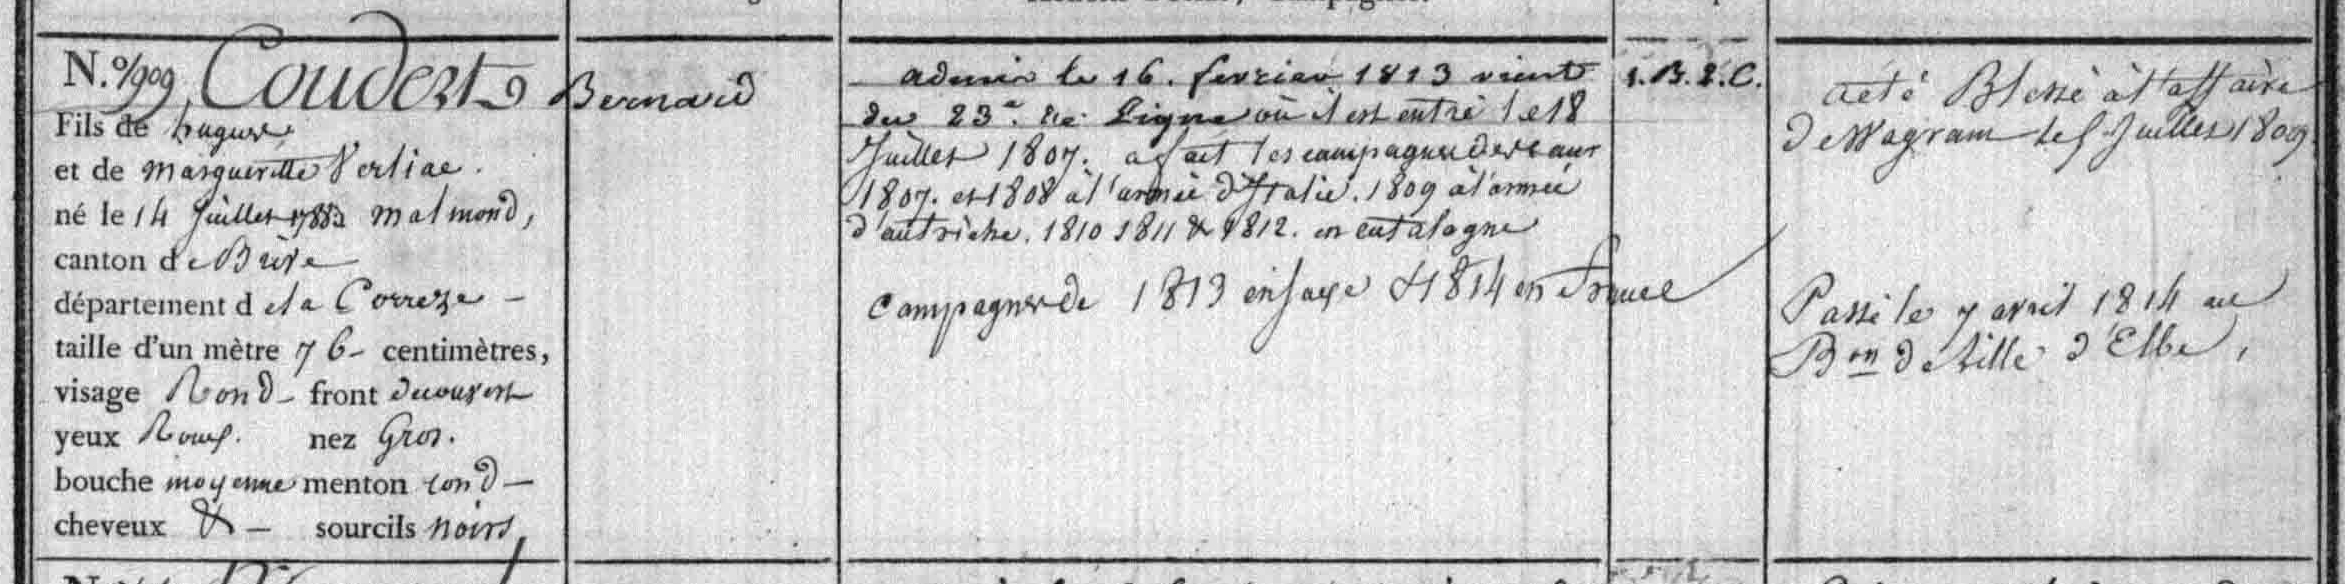 N.º 1909, Coudert
Fils de hugues
et de Margueritte Verliac.
né le 14 Juillet Malmond,
canton de Brive
département de la Correze -
taille d'un mètre 76 - centimètres,
visage Rond - front decouvert
yeux Roux. nez Gros.
bouche moyenne menton rond -
cheveux & - sourcils noirs,
Bernard
admis le 16. fevrier 1813 vient
du 23e. de Ligne où il est entré le 18
Juillet 1807. a fait les campagnes des ans
1807. et 1808 à l'armée d'Italie. 1809 à l'armée
d'autriche. 1810 1811 & 1812. en catalogne
Campagnes de 1813 en Saxe & 1814 en france
1. B. 2. C.
a été Blessé à l'affaire
de Wagram le 5 Juillet 1809.
Passé le 7 avril 1814 au
Bon de l'ille d'Elbe,